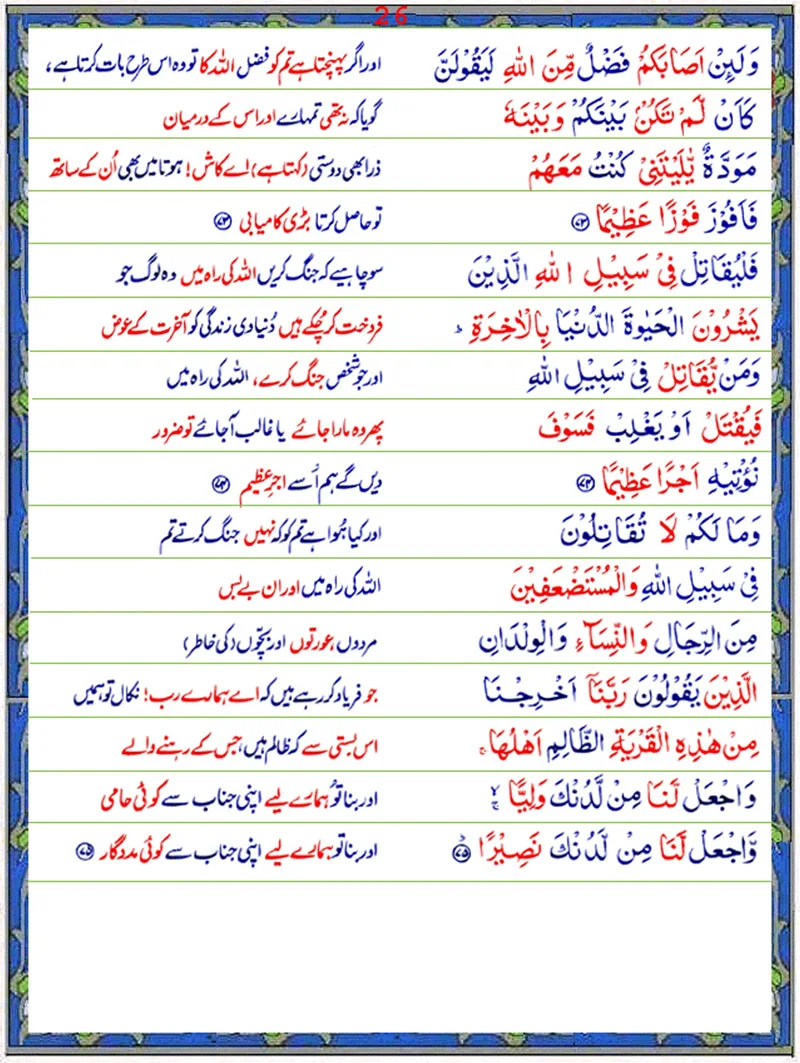 26
وَلَئِنْ اَصَابَكُمْ فَضْلٌ مِّنَ اللهِ لَيَقُوْلَنَّ اور اگر پہنچتا ہے تم کو فضل اللہ کا تو وہ اس طرح بات کرتا ہے،
كَاَنْ لَّمْ تَكُنْۢ بَيْنَكُمْ وَبَيْنَهٗ گویا کہ نہ تھی تمہارے اور اس کے درمیان
مَوَدَّةٌ يّٰلَيْتَنِيْ كُنْتُ مَعَهُمْ ذرا بھی دوستی (کہتا ہے) اے کاش! ہوتا میں بھی اُن کے ساتھ
فَاَفُوْزَ فَوْزًا عَظِيْمًا ﴿۷۳﴾ تو حاصل کرتا بڑی کامیابی ﴿۷۳﴾
فَلْيُقَاتِلْ فِيْ سَبِيْلِ اللهِ الَّذِيْنَ سو چاہیے کہ جنگ کریں اللہ کی راہ میں وہ لوگ جو
يَشْرُوْنَ الْحَيٰوةَ الدُّنْيَا بِالْاٰخِرَةِ ؕ فروخت کر چُکے ہیں دُنیاوی زندگی کو آخرت کے عوض
وَمَنْ يُّقَاتِلْ فِيْ سَبِيْلِ اللهِ اور جو شخص جنگ کرے، اللہ کی راہ میں
فَيُقْتَلْ اَوْ يَغْلِبْ فَسَوْفَ پھر وہ مارا جائے یا غالب آ جائے تو ضرور
نُؤْتِيْهِ اَجْرًا عَظِيْمًا ﴿۷۴﴾ دیں گے ہم اُسے اجرِ عظیم ﴿۷۴﴾
وَمَا لَكُمْ لَا تُقَاتِلُوْنَ اور کیا ہُوا ہے تم کو کہ نہیں جنگ کرتے تم
فِيْ سَبِيْلِ اللهِ وَالْمُسْتَضْعَفِيْنَ اللہ کی راہ میں اور ان بے بس
مِنَ الرِّجَالِ وَالنِّسَآءِ وَالْوِلْدَانِ مردوں، عورتوں اور بچّوں (کی خاطر)
الَّذِيْنَ يَقُوْلُوْنَ رَبَّنَآ اَخْرِجْنَا جو فریاد کر رہے ہیں کہ اے ہمارے رب! نکال تو ہمیں
مِنْ هٰذِهِ الْقَرْيَةِ الظَّالِمِ اَهْلُهَا ۚ اس بستی سے کہ ظالم ہیں، جس کے رہنے والے
وَاجْعَلْ لَّنَا مِنْ لَّدُنْكَ وَلِيًّا ۙۚ اور بنا تُو ہمارے لیے اپنی جناب سے کوئی حامی
وَّاجْعَلْ لَّنَا مِنْ لَّدُنْكَ نَصِيْرًا ﴿۷۵﴾ؕ اور بنا تو ہمارے لیے اپنی جناب سے کوئی مددگار ﴿۷۵﴾